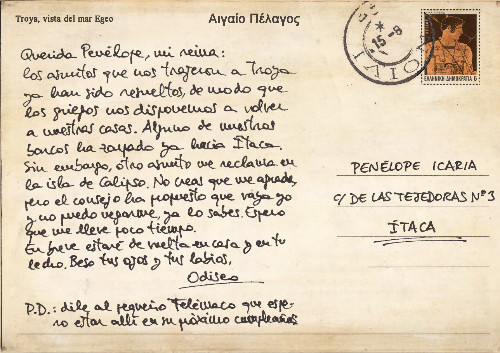 Troya, vista del mar Egeo
Αιγαίο Πέλαγος
15 -8
ΙΛΙΟΝ
ΕΛΛΗΝΙΚΗ ΔΗΜΟΚΡΑΤΙΑ 6
Querida Penélope, mi reina:
los asuntos que nos trajeron a Troya
ya han sido resueltos, de modo que
los griegos nos disponemos a volver
a nuestras casas. Alguno de nuestros
barcos ha zarpado ya hacia Ítaca.
Sin embargo, otro asunto me reclama en
la isla de Calipso. No creas que me agrada,
pero el consejo ha propuesto que vaya yo
y no puedo negarme, ya lo sabes. Espero
que me lleve poco tiempo.
En breve estaré de vuelta en casa y en tu
lecho. Beso tus ojos y tus labios,
Odiseo
P.D.: dile al pequeño Telémaco que espe-
ro estar allí en su próximo cumpleaños
PENÉLOPE ICARIA
C/ DE LAS TEJEDORAS Nº 3
ÍTACA